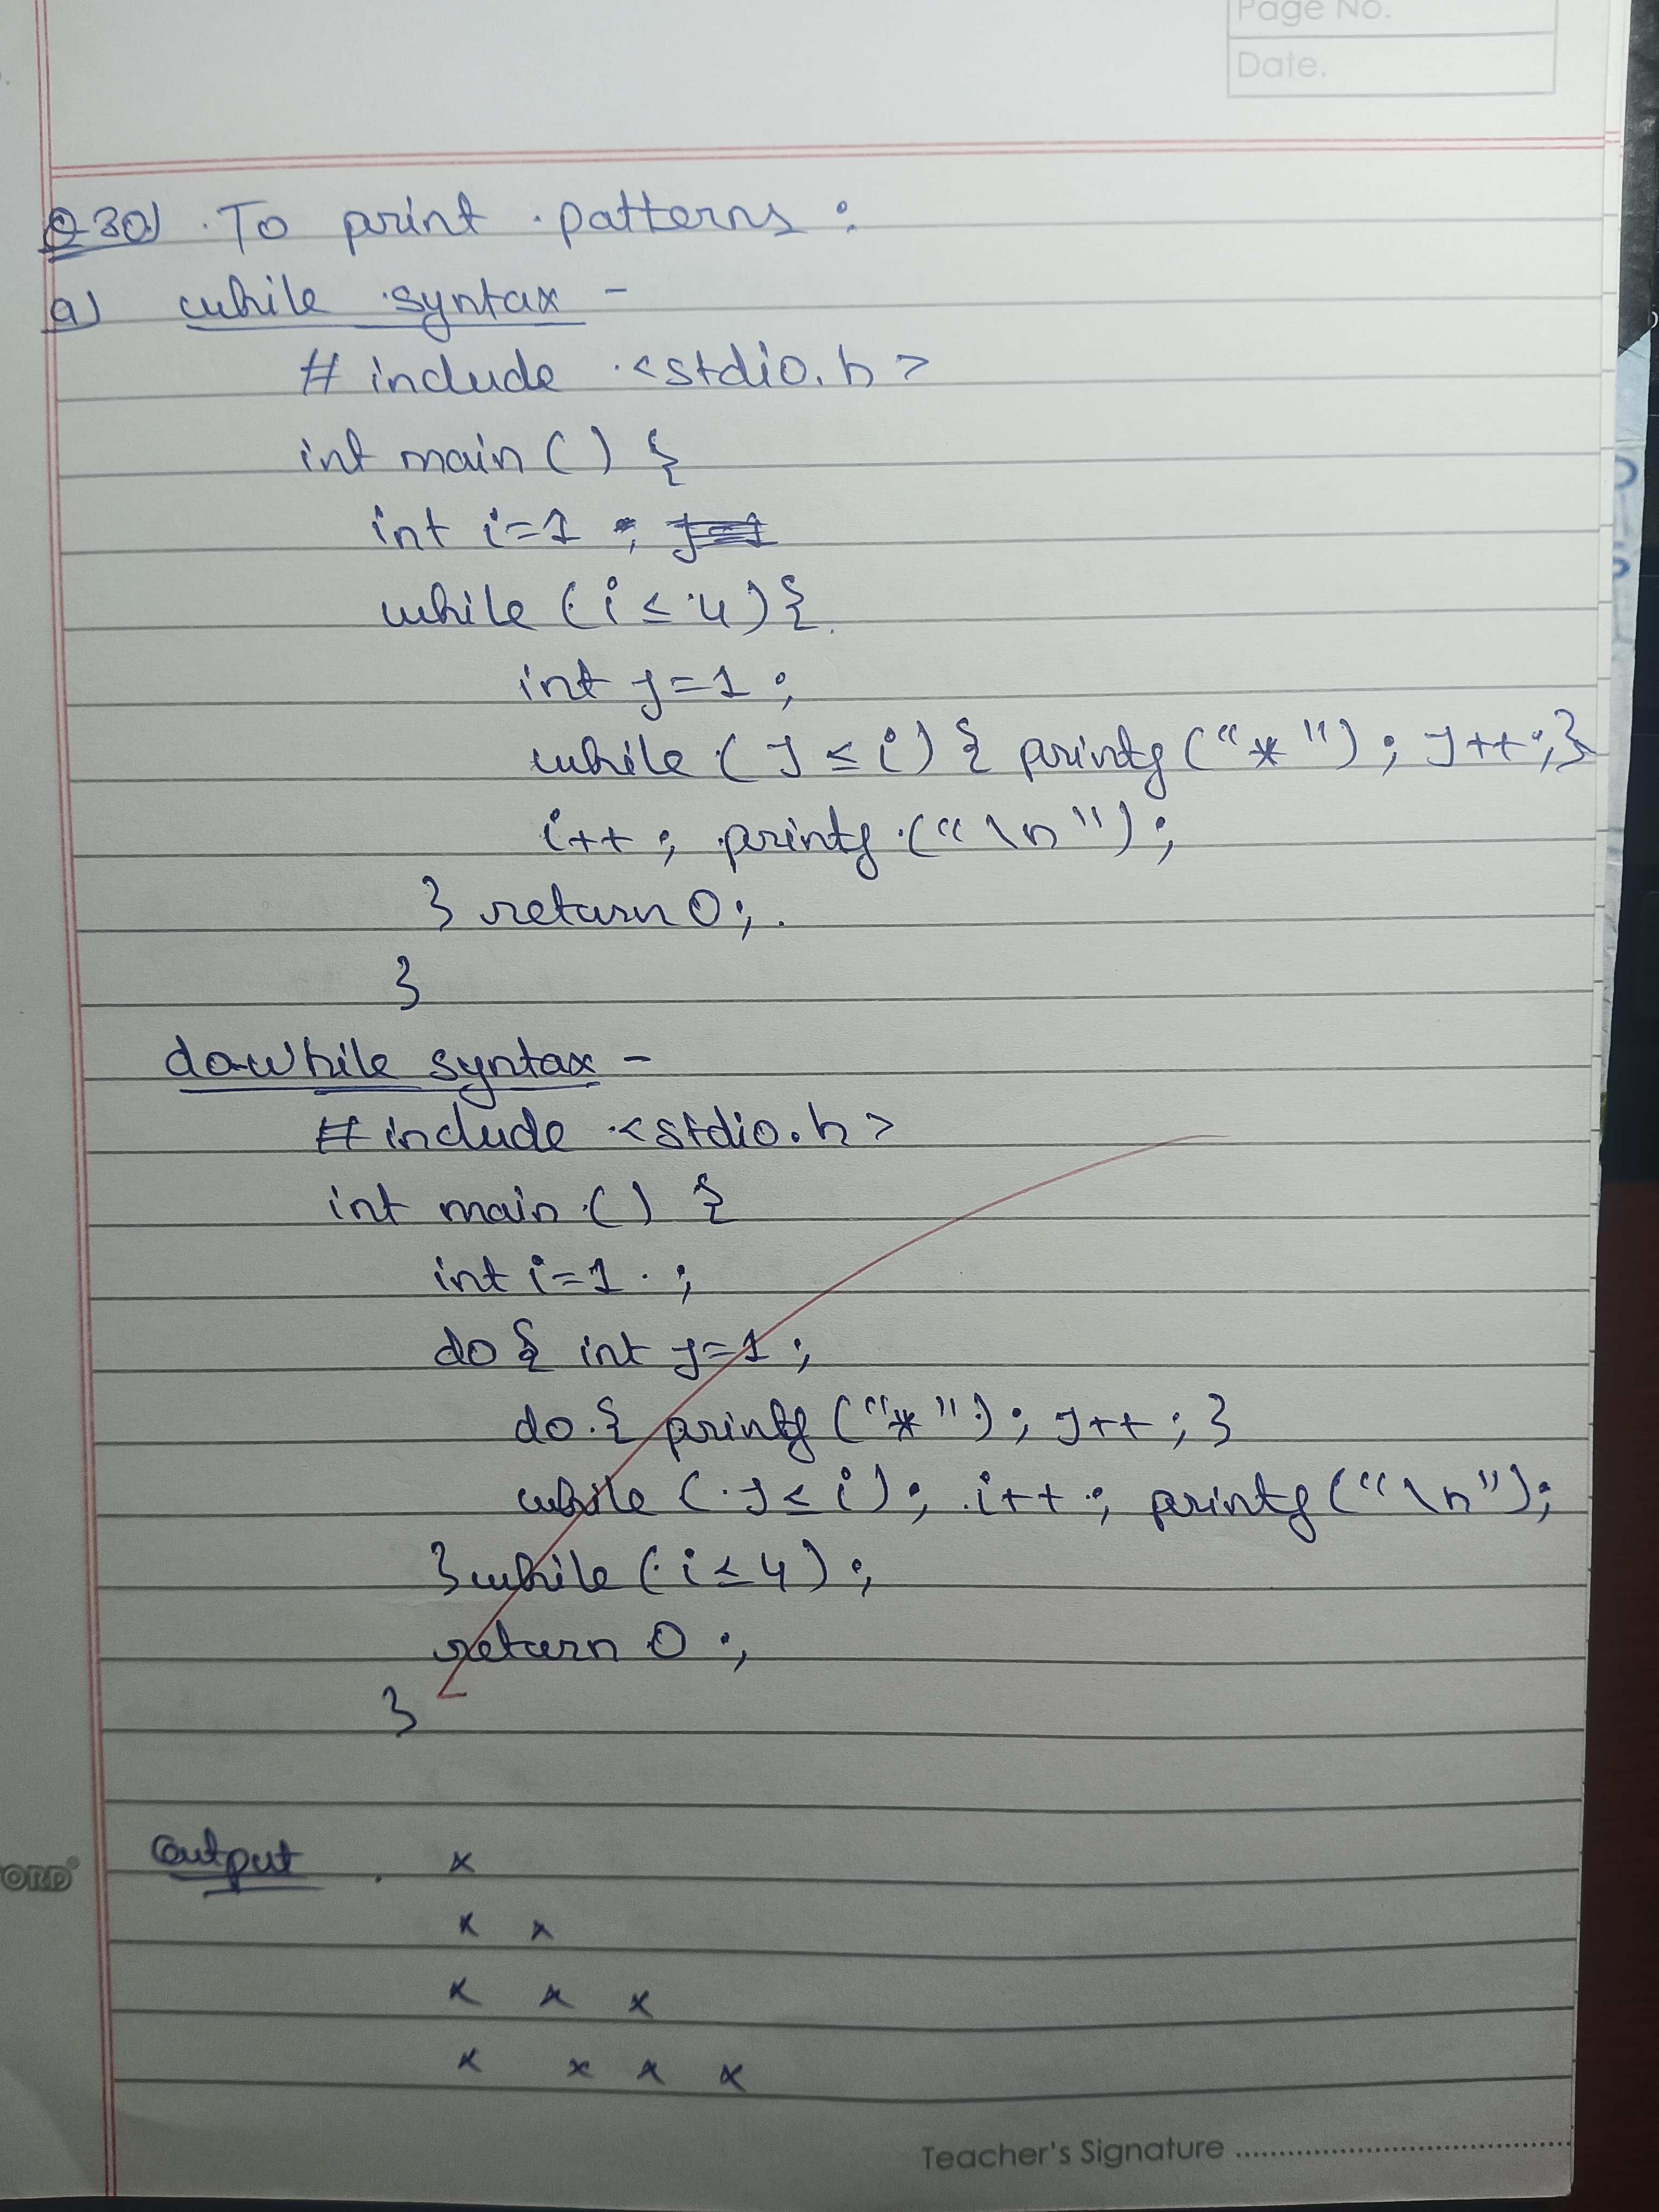 Page No.
Date.
Q30) To print patterns :
a) while syntax -
# include <stdio.h>
int main () {
int i=1 ;
while (i ≤ 4) {
int j=1 ;
while ( j ≤ i) { printf ("*") ; j++ ; }
i++ ; printf ("\n") ;
} return 0 ;
}
do-while syntax -
# include <stdio.h>
int main () {
int i=1 ;
do { int j=1 ;
do { printf ("*") ; j++ ; }
while ( j ≤ i) ; i++ ; printf ("\n") ;
} while (i ≤ 4) ;
return 0 ;
}
Output x
x x
x x x
x x x x
ORD®
Teacher's Signature